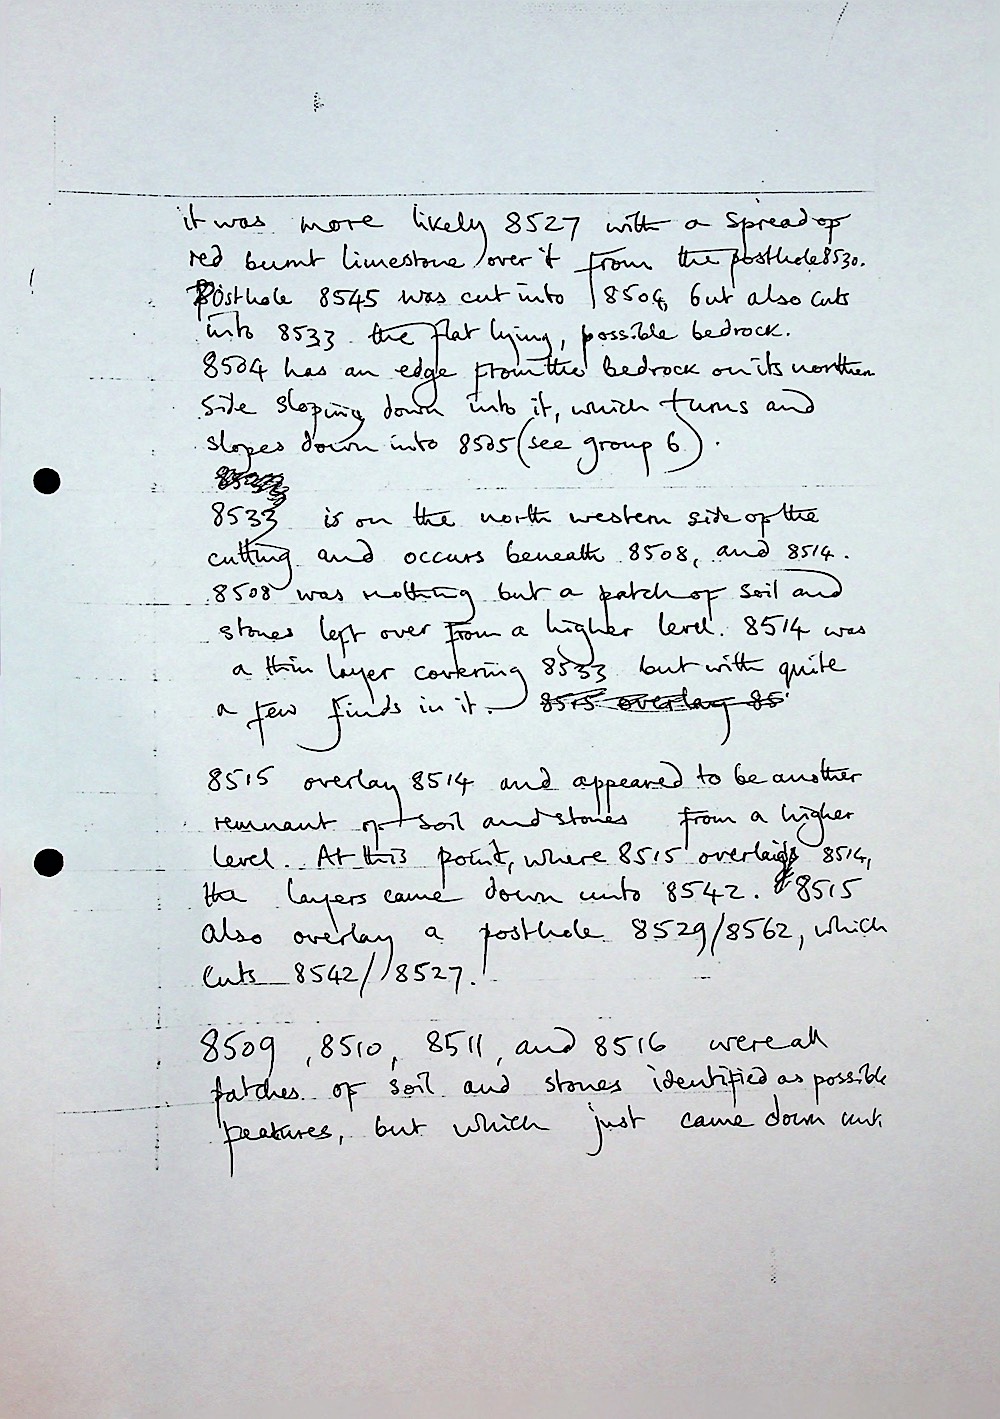 it was more likely 8527 with a spread of
red burnt limestone over it from the posthole 8530.
Posthole 8545 was cut into 8504, but also cuts
into 8533 the flat lying, possible bedrock.
8504 has an edge from the bedrock on its northern
side sloping down into it, which turns and
slopes down into 8505 (see group 6).
8533 is on the north western side of the
cutting and occurs beneath 8508, and 8514.
8508 was nothing but a patch of soil and
stones left over from a higher level. 8514 was
a thin layer covering 8533 but with quite
a few finds in it. 8515 overlay 85
8515 overlay 8514 and appeared to be another
remnant of soil and stones from a higher
level. At this point, where 8515 overlay 8514,
the layers came down unto 8542. 8515
also overlay a posthole 8529/8562, which
cuts 8542/8527.
8509, 8510, 8511, and 8516 were all
patches of soil and stones identified as possible
features, but which just came down unto